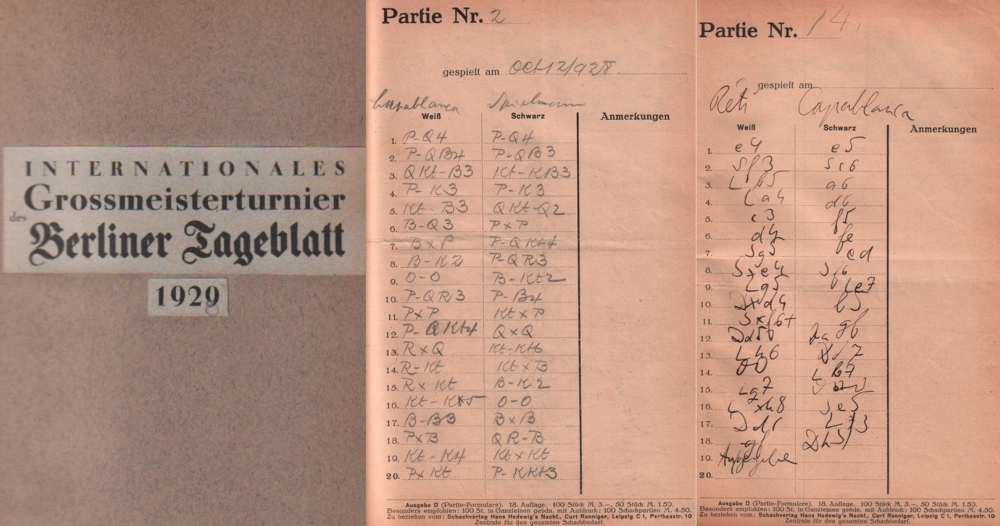 INTERNATIONALES
Grossmeisterturnier
des
Berliner Tageblatt
1929
Partie Nr. 2
gespielt am Oct 12/928
Capablanca Spielmann
Weiß Schwarz Anmerkungen
1. P-Q4 P-Q4
2. P-QB4 P-QB3
3. QKt-B3 Kt-KB3
4. P-K3 P-K3
5. Kt-B3 QKt-Q2
6. B-Q3 P×P
7. B×P P-QKt4
8. B-K2 P-QR3
9. O-O B-Kt2
10. P-QR3 P-B4
11. P×P Kt×P
12. P-QKt4 Q×Q
13. R×Q Kt-Kt6
14. R-Kt Kt×B
15. R×Kt B-K2
16. Kt-K5 O-O
17. B-B3 B×B
18. P×B QR-B
19. Kt-K4 Kt×Kt
20. P×Kt P-KKt3
Ausgabe D (Partie-Formulare). 18. Auflage. 100 Stück M. 3.—, 50 Stück M. 1.50.
Besonders empfohlen: 100 St. in Ganzleinen gebdn. mit Aufdruck: 100 Schachpartien M. 4.50.
Zu beziehen vom: Schachverlag Hans Hedewig's Nachf., Curt Ronniger, Leipzig C 1, Perthesstr. 10.
Zentrale für den gesamten Schachbedarf.
Partie Nr. 14.
gespielt am
Réti Capablanca
Weiß Schwarz Anmerkungen
1. e4 e5
2. Sf3 Sc6
3. Lb5 a6
4. La4 d6
5. c3 f5
6. d4 fe
7. Sg5 ed
8. S×e4 Sf6
9. Lg5 Le7
10. D×d4 b5
11. S×f6+ gf
12. Dd5
13. Lh6 Dd7
14. 00 Lb7
15. Lg7
16. L×h8 Se5
17. Dd1 Lf3
18. Dh3
19. Aufgegeben
20.
Ausgabe D (Partie-Formulare). 18. Auflage. 100 Stück M. 3.—, 50 Stück M. 1.50.
Besonders empfohlen: 100 St. in Ganzleinen gebdn. mit Aufdruck: 100 Schachpartien M. 4.50.
Zu beziehen vom: Schachverlag Hans Hedewig's Nachf., Curt Ronniger, Leipzig C 1, Perthesstr. 10.
Zentrale für den gesamten Schachbedarf.